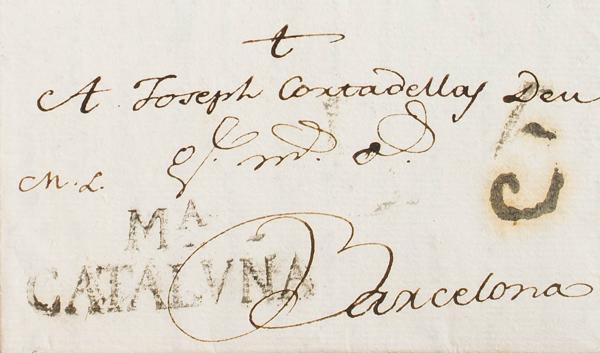 †
A Joseph Cortadellas Deu
gs. ms. as.
M. L.
5
MA
CATALVÑA
Barcelona